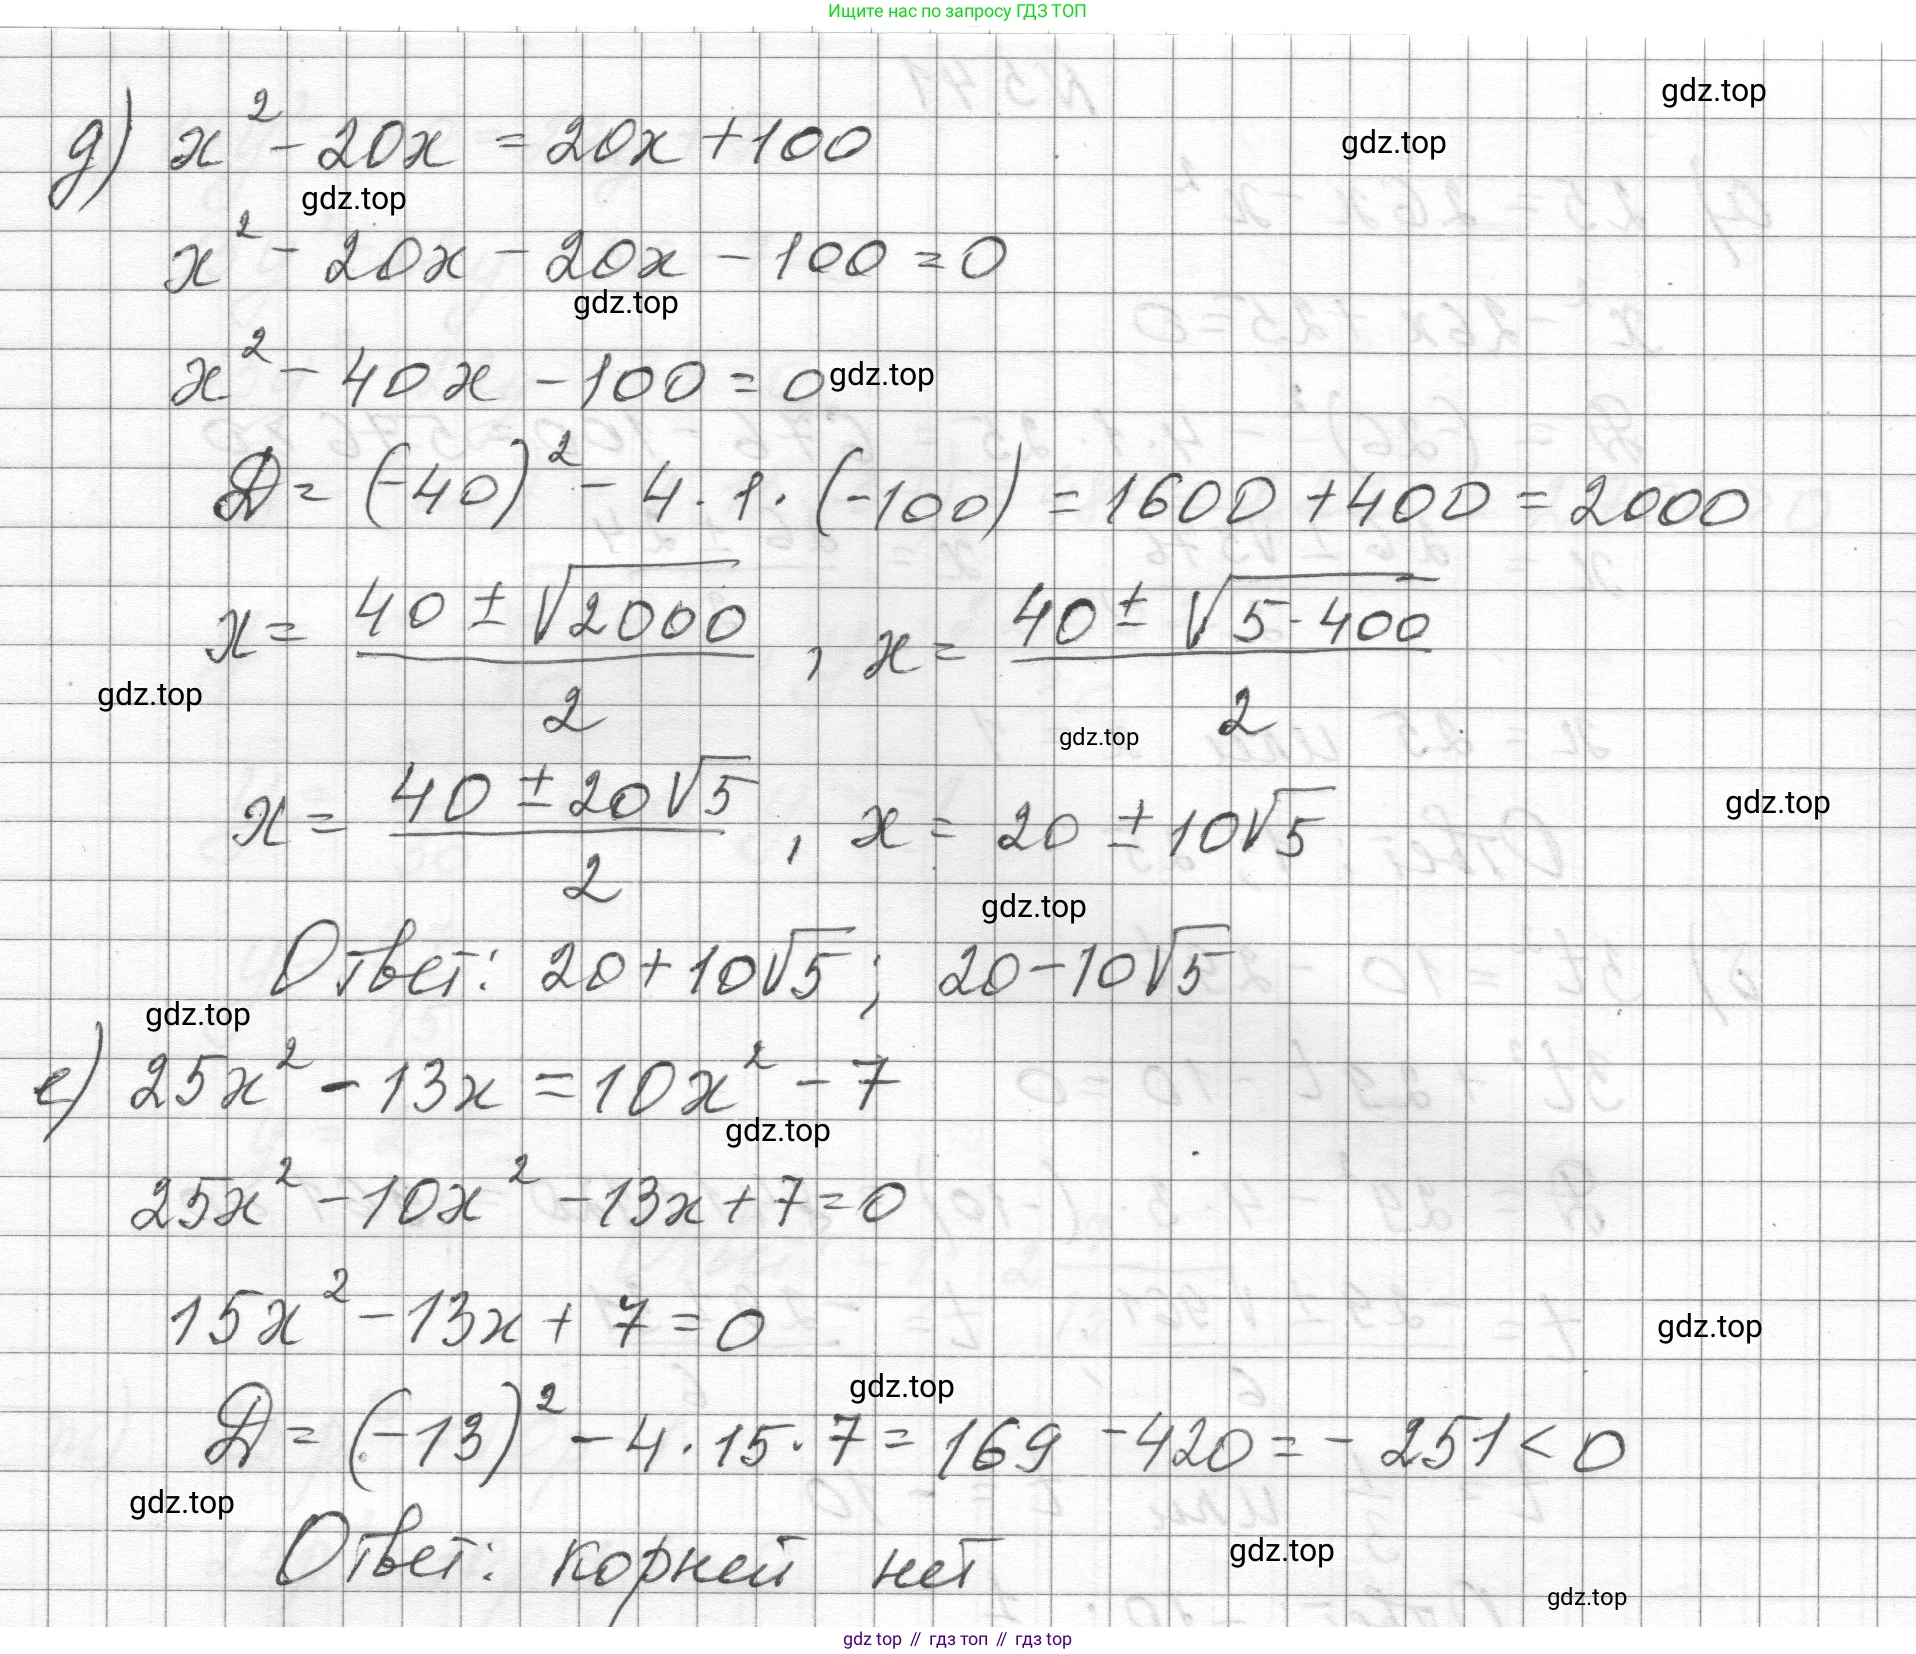 Ищите нас по запросу ГДЗ ТОП
gdz.top
д) x² - 20x = 20x + 100
gdz.top
gdz.top
x² - 20x - 20x - 100 = 0
gdz.top
x² - 40x - 100 = 0
gdz.top
D = (-40)² - 4 · 1 · (-100) = 1600 + 400 = 2000
x = (40 ± √2000)/2 , x = (40 ± √5·400)/2
gdz.top
gdz.top
x = (40 ± 20√5)/2 , x = 20 ± 10√5
gdz.top
gdz.top
Ответ: 20 + 10√5 ; 20 - 10√5
gdz.top
е) 25x² - 13x = 10x² - 7
gdz.top
25x² - 10x² - 13x + 7 = 0
15x² - 13x + 7 = 0
gdz.top
gdz.top
D = (-13)² - 4 · 15 · 7 = 169 - 420 = - 251 < 0
gdz.top
Ответ: корней нет
gdz.top
gdz.top
gdz top // гдз топ // гдз top